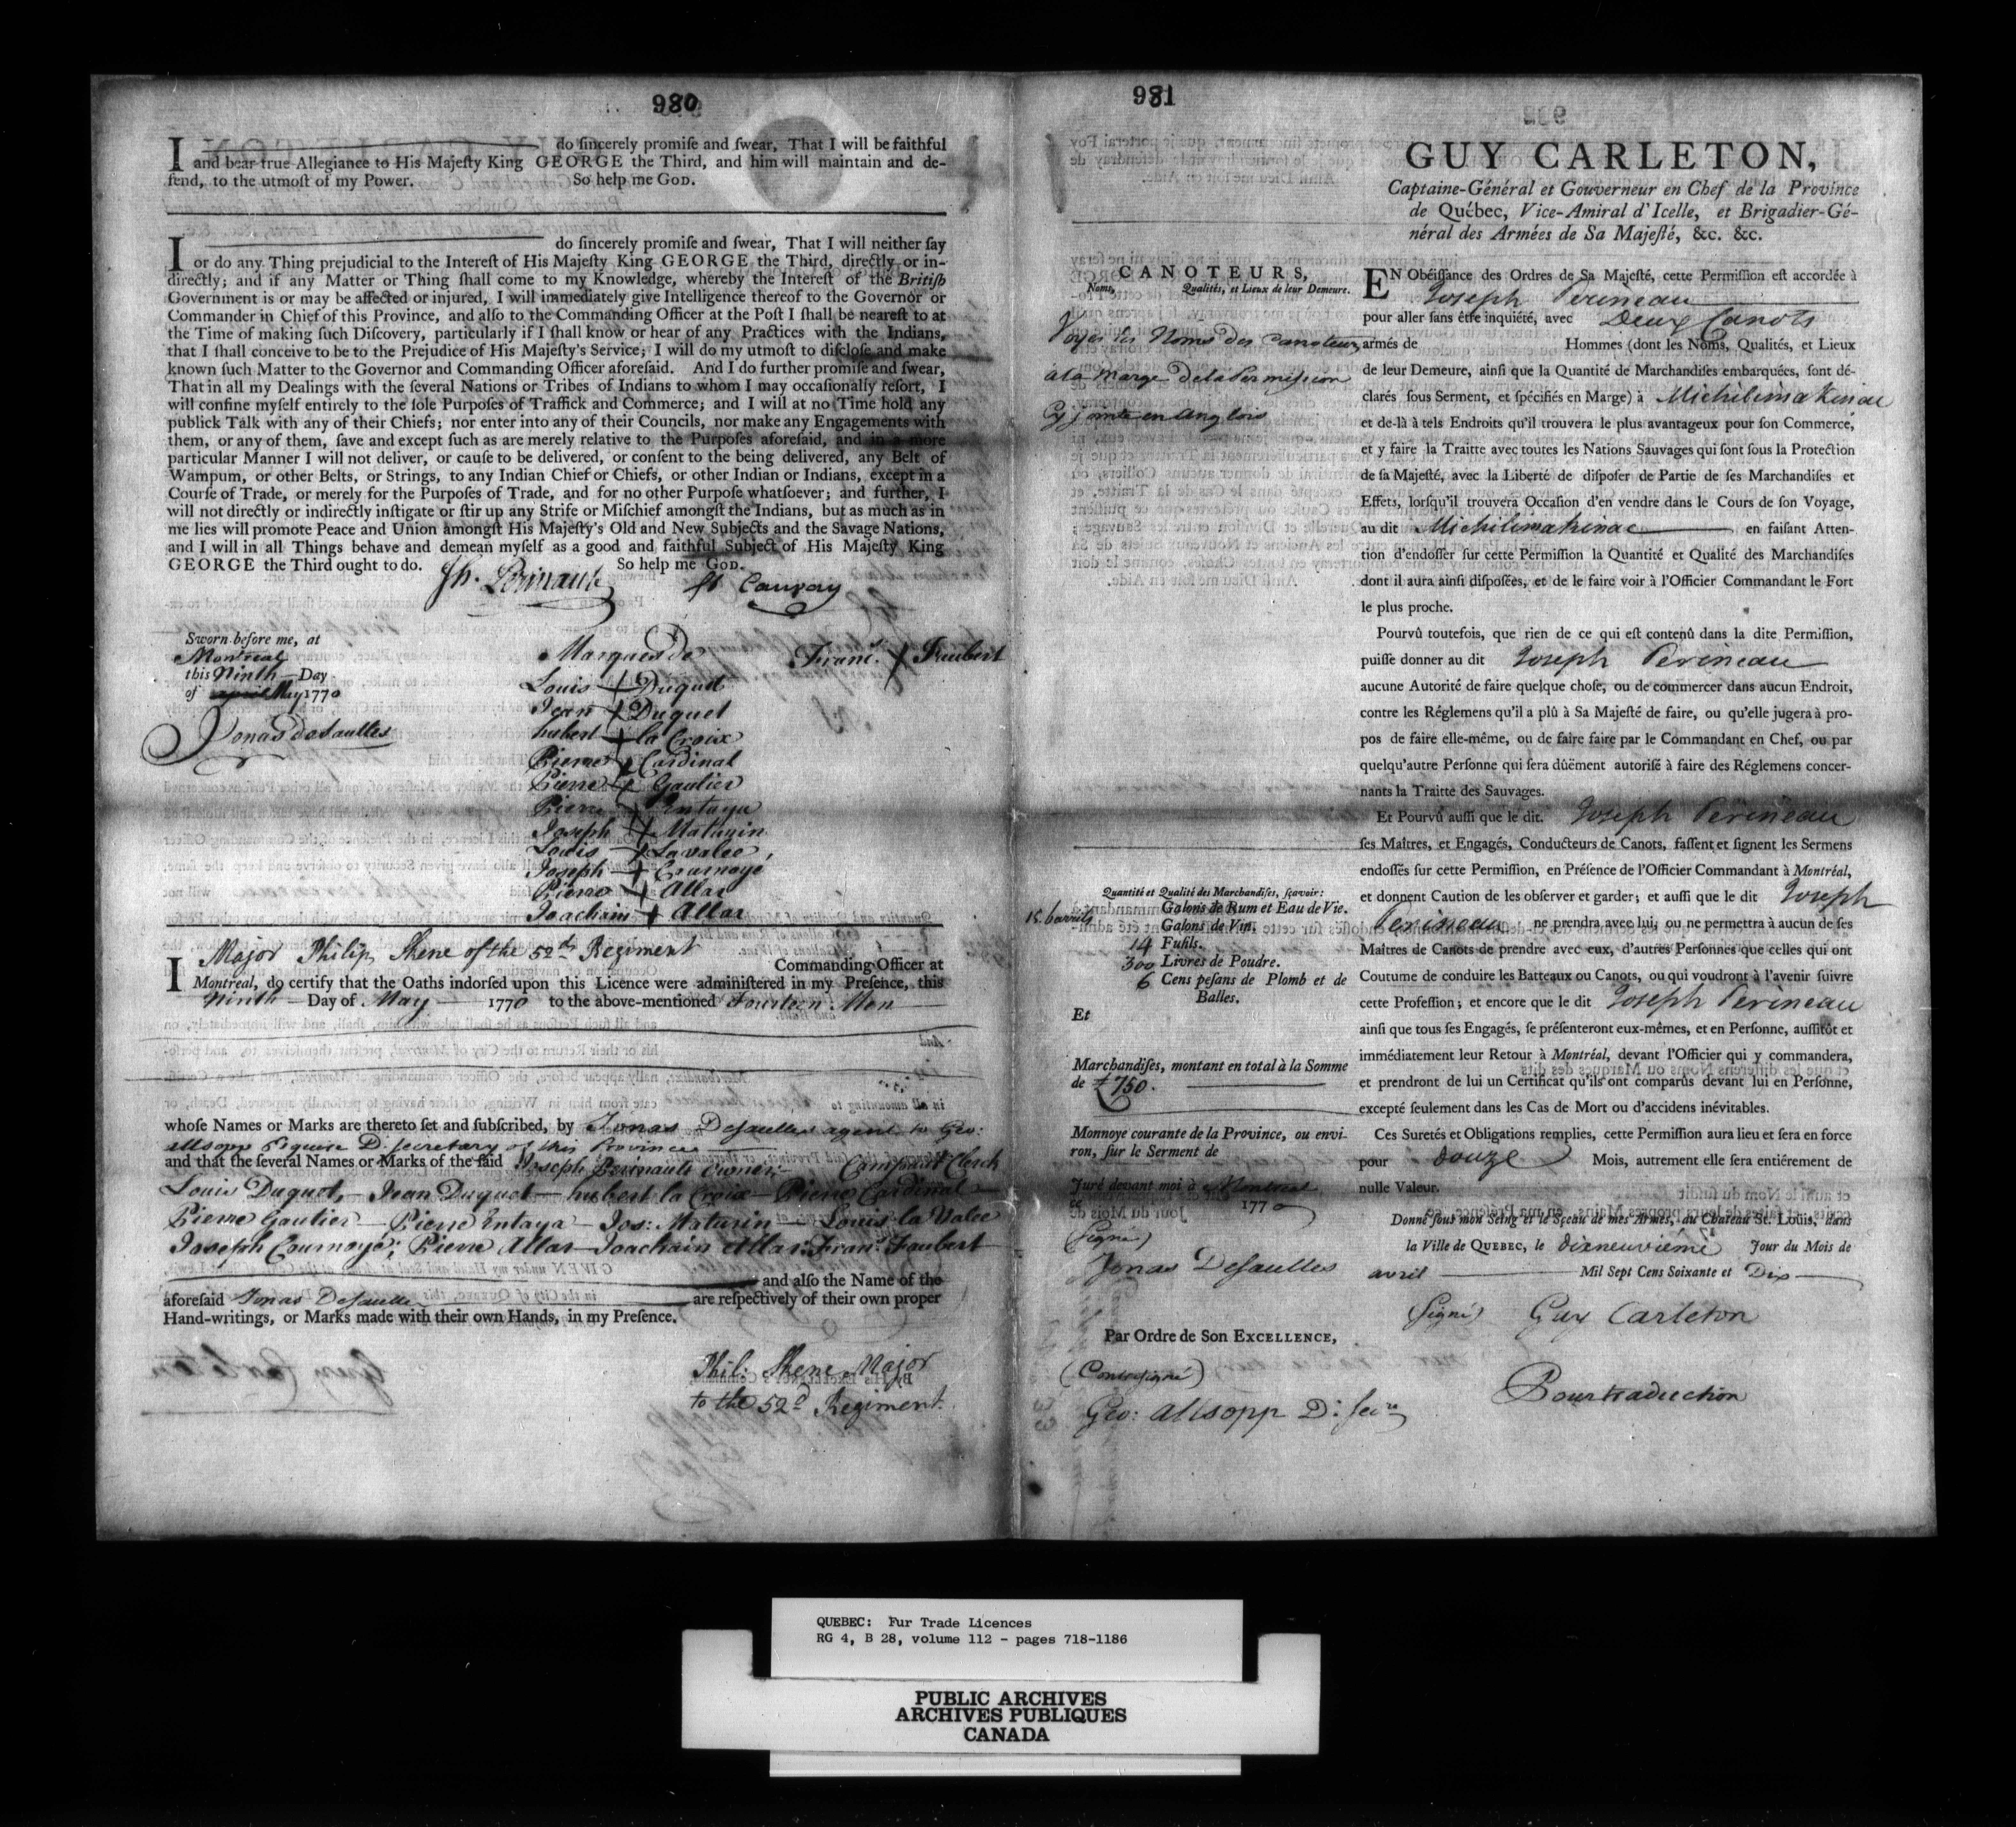 980
I do sincerely promiſe and ſwear, That I will be faithful
and bear true Allegiance to His Majeſty King GEORGE the Third, and him will maintain and de-
fend, to the utmoſt of my Power. So help me GOD.
I do ſincerely promiſe and ſwear, That I will neither ſay
or do any Thing prejudicial to the Intereſt of His Majeſty King GEORGE the Third, directly or in-
directly; and if any Matter or Thing ſhall come to my Knowledge, whereby the Intereſt of the Britiſh
Government is or may be affected or injured, I will immediately give Intelligence thereof to the Governor or
Commander in Chief of this Province, and alſo to the Commanding Officer at the Poſt I ſhall be neareſt to at
the Time of making ſuch Diſcovery, particularly if I ſhall know or hear of any Practices with the Indians,
that I ſhall conceive to be to the Prejudice of His Majeſty's Service; I will do my utmoſt to diſcloſe and make
known ſuch Matter to the Governor and Commanding Officer aforeſaid. And I do further promiſe and ſwear,
That in all my Dealings with the ſeveral Nations or Tribes of Indians to whom I may occaſionally reſort, I
will confine myſelf entirely to the ſole Purpoſes of Traffick and Commerce; and I will at no Time hold any
publick Talk with any of their Chiefs; nor enter into any of their Councils, nor make any Engagements with
them, or any of them, ſave and except ſuch as are merely relative to the Purpoſes aforeſaid, and in a more
particular Manner I will not deliver, or cauſe to be delivered, or conſent to the being delivered, any Belt of
Wampum, or other Belts, or Strings, to any Indian Chief or Chiefs, or other Indian or Indians, except in a
Courſe of Trade, or merely for the Purpoſes of Trade, and for no other Purpoſe whatſoever; and further, I
will not directly or indirectly inſtigate or ſtir up any Strife or Miſchief amongſt the Indians, but as much as in
me lies will promote Peace and Union amongſt His Majeſty's Old and New Subjects and the Savage Nations,
and I will in all Things behave and demean myſelf as a good and faithful Subject of His Majeſty King
GEORGE the Third ought to do. So help me GOD.
Jh. Perinault
Sworn before me, at
Montreal
this Ninth Day
of april May 1770
Jonas desaulles
Marques de Franc. + Faubert
Louis + Duquet
Jean + Duquet
hubert + la Croix
Pierre + Cardinal
Pierre + Gautier
Pierre + Entaya
Joseph + Maturin
Louis + Lavalee
Joseph + Cournoyé
Pierre + Allar
Joachain + Allar
I Major Philip Skene of the 52d Regiment Commanding Officer at
Montreal, do certify that the Oaths indorſed upon this Licence were adminiſtered in my Preſence, this
Ninth Day of May 1770 to the above-mentioned Fourteen Men
whoſe Names or Marks are thereto ſet and ſubſcribed, by Jonas Desaulles agent to Geo:
allsopp Esquire D: Secretary of this Province
and that the ſeveral Names or Marks of the ſaid Joseph Perinault owner; Campault Clerck
Louis Duquet, Jean Duquet hubert la Croix Pierre Cardinal
Pierre Gautier Pierre Entaya Jos: Maturin Louis la Valee
Joseph Cournoyé, Pierre Allar Joachain Allar: Franc. Faubert
and alſo the Name of the
aforeſaid Jonas Desaulles are reſpectively of their own proper
Hand-writings, or Marks made with their own Hands, in my Preſence.
Phil: Skene Major
to the 52d Regiment.
981
GUY CARLETON,
Captaine-Général et Gouverneur en Chef de la Province
de Québec, Vice-Amiral d'Icelle, et Brigadier-Gé-
néral des Armées de Sa Majeſté, &c. &c.
CANOTEURS,
Noms, Qualités, et Lieux de leur Demeure.
Voyés les Noms des Canoteurs
a la Marge de la Permission
cy jointe en Anglois
EN Obéiſſance des Ordres de Sa Majeſté, cette Permiſſion eſt accordée à
Joseph Perineau
pour aller ſans être inquiété, avec Deux Canots
armés de Hommes (dont les Noms, Qualités, et Lieux
de leur Demeure, ainſi que la Quantité de Marchandiſes embarquées, ſont dé-
clarés ſous Serment, et ſpécifiés en Marge) à Michilimakinac
et de-là à tels Endroits qu'il trouvera le plus avantageux pour ſon Commerce,
et y faire la Traitte avec toutes les Nations Sauvages qui ſont ſous la Protection
de ſa Majeſté, avec la Liberté de diſpoſer de Partie de ſes Marchandiſes et
Effets, lorſqu'il trouvera Occaſion d'en vendre dans le Cours de ſon Voyage,
au dit Michilimakinac en faiſant Atten-
tion d'endoſſer ſur cette Permiſſion la Quantité et Qualité des Marchandiſes
dont il aura ainſi diſpoſées, et de le faire voir à l'Officier Commandant le Fort
le plus proche.
Pourvû toutefois, que rien de ce qui eſt contenû dans la dite Permiſſion,
puiſſe donner au dit Joseph Perineau
aucune Autorité de faire quelque choſe, ou de commercer dans aucun Endroit,
contre les Réglemens qu'il a plû à Sa Majeſté de faire, ou qu'elle jugera à pro-
pos de faire elle-même, ou de faire faire par le Commandant en Chef, ou par
quelqu'autre Perſonne qui ſera dûëment autoriſé à faire des Réglemens concer-
nants la Traitte des Sauvages.
Et Pourvû auſſi que le dit. Joseph Perineau
ſes Maîtres, et Engagés, Conducteurs de Canots, faſſent et ſignent les Sermens
endoſſés ſur cette Permiſſion, en Préſence de l'Officier Commandant à Montréal,
et donnent Caution de les obſerver et garder; et auſſi que le dit Joseph
Perineau ne prendra avec lui, ou ne permettra à aucun de ſes
Maîtres de Canots de prendre avec eux, d'autres Perſonnes que celles qui ont
Coutume de conduire les Batteaux ou Canots, ou qui voudront à l'avenir ſuivre
cette Profeſſion; et encore que le dit Joseph Perineau
ainſi que tous ſes Engagés, ſe préſenteront eux-mêmes, et en Perſonne, auſſitôt et
immédiatement leur Retour à Montréal, devant l'Officier qui y commandera,
et prendront de lui un Certificat qu'ils ont comparûs devant lui en Perſonne,
excepté ſeulement dans les Cas de Mort ou d'accidens inévitables.
Ces Suretés et Obligations remplies, cette Permiſſion aura lieu et ſera en force
pour douze Mois, autrement elle ſera entiérement de
nulle Valeur.
Donné ſous mon Seing et le Sceau de mes Armes, au Chateau St. Louis, dans
la Ville de QUEBEC, le dixneuvieme Jour du Mois de
avril Mil Sept Cens Soixante et Dix
(signé) Guy Carleton
Pour traduction
Quantité et Qualité des Marchandiſes, ſçavoir:
15 barrils Galons de Rum et Eau de Vie.
Galons de Vin.
14 Fuſils.
300 Livres de Poudre.
6 Cens peſans de Plomb et de
Balles.
Et
Marchandiſes, montant en total à la Somme
de £750.
Monnoye courante de la Province, ou envi-
ron, ſur le Serment de
Juré devant moi à Montreal
ce Jour du Mois de 1770
(signé)
Jonas Desaulles
Par Ordre de Son EXCELLENCE,
(Contresigné)
Geo: Allsopp D: Secre
QUEBEC: Fur Trade Licences
RG 4, B 28, volume 112 - pages 718-1186
PUBLIC ARCHIVES
ARCHIVES PUBLIQUES
CANADA